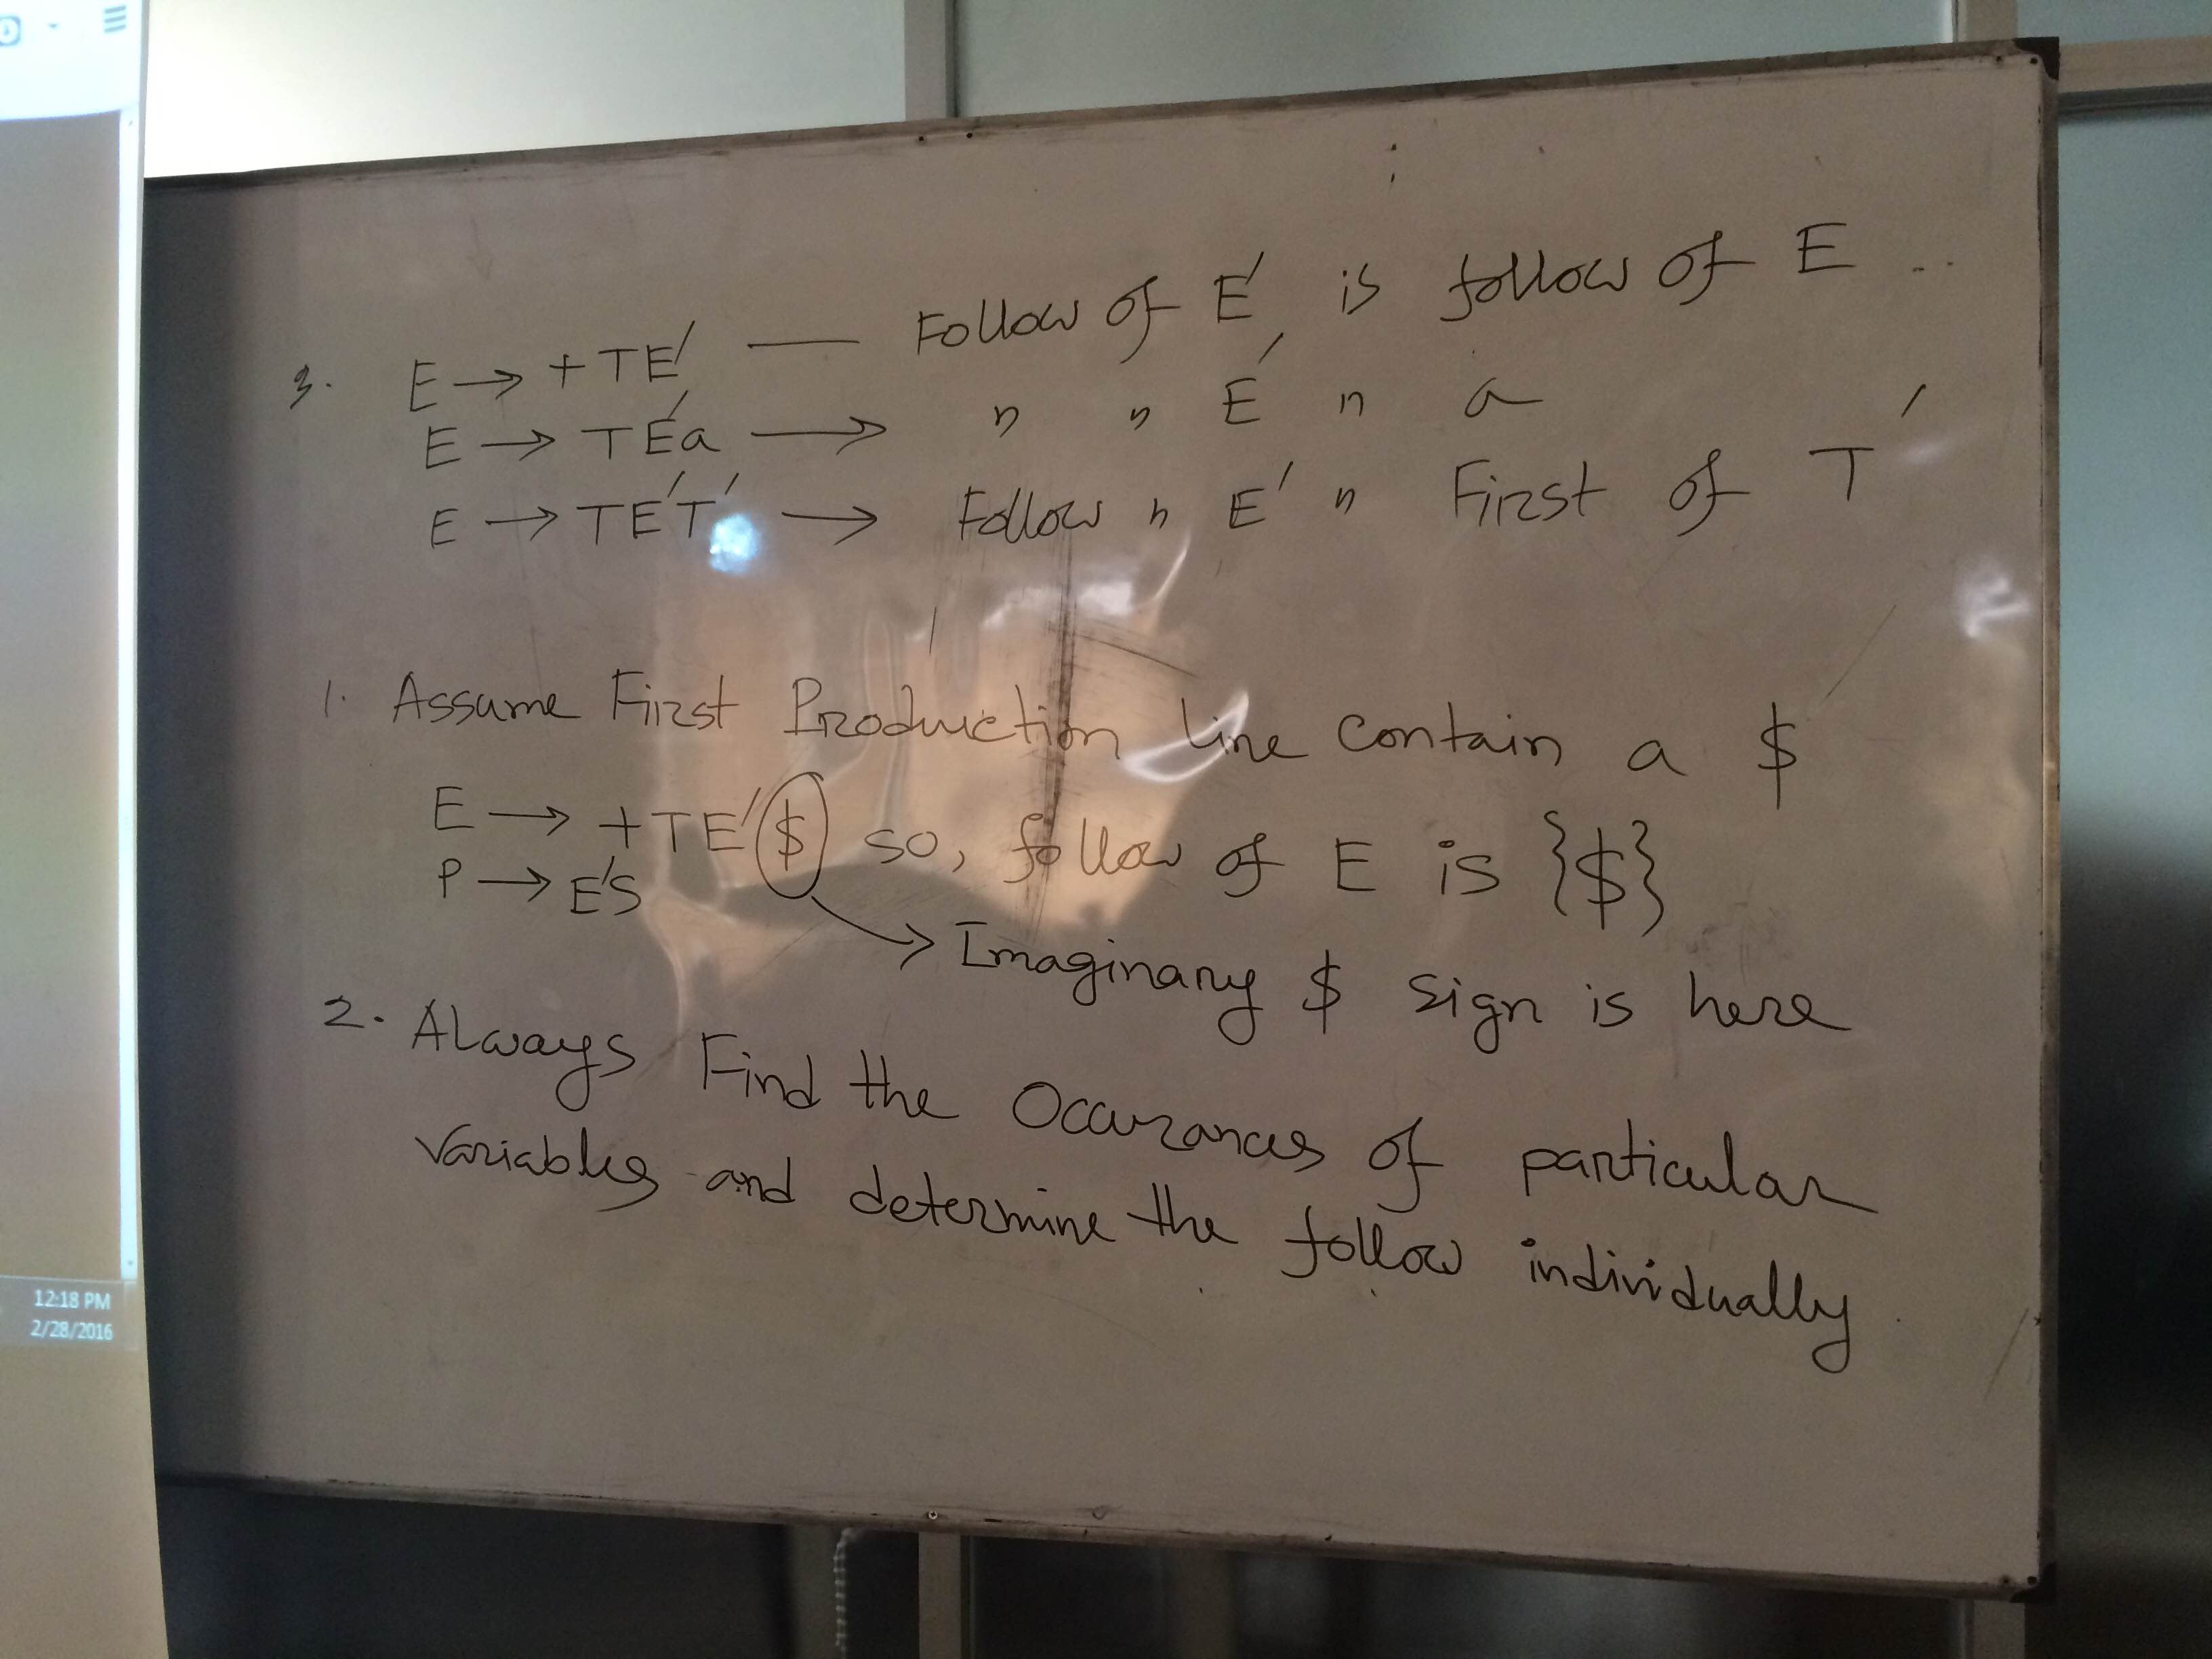 3. E → + TE' — Follow of E' is follow of E ..
E → TE'a → " " E' " a
E → TE'T' → Follow " E' " First of T'
1. Assume First Production line contain a $
E → +TE'$ so, follow of E is {$}
P → E'S
→ Imaginary $ sign is here
2. Always Find the Occurances of particular
variables and determine the follow individually
12:18 PM
2/28/2016